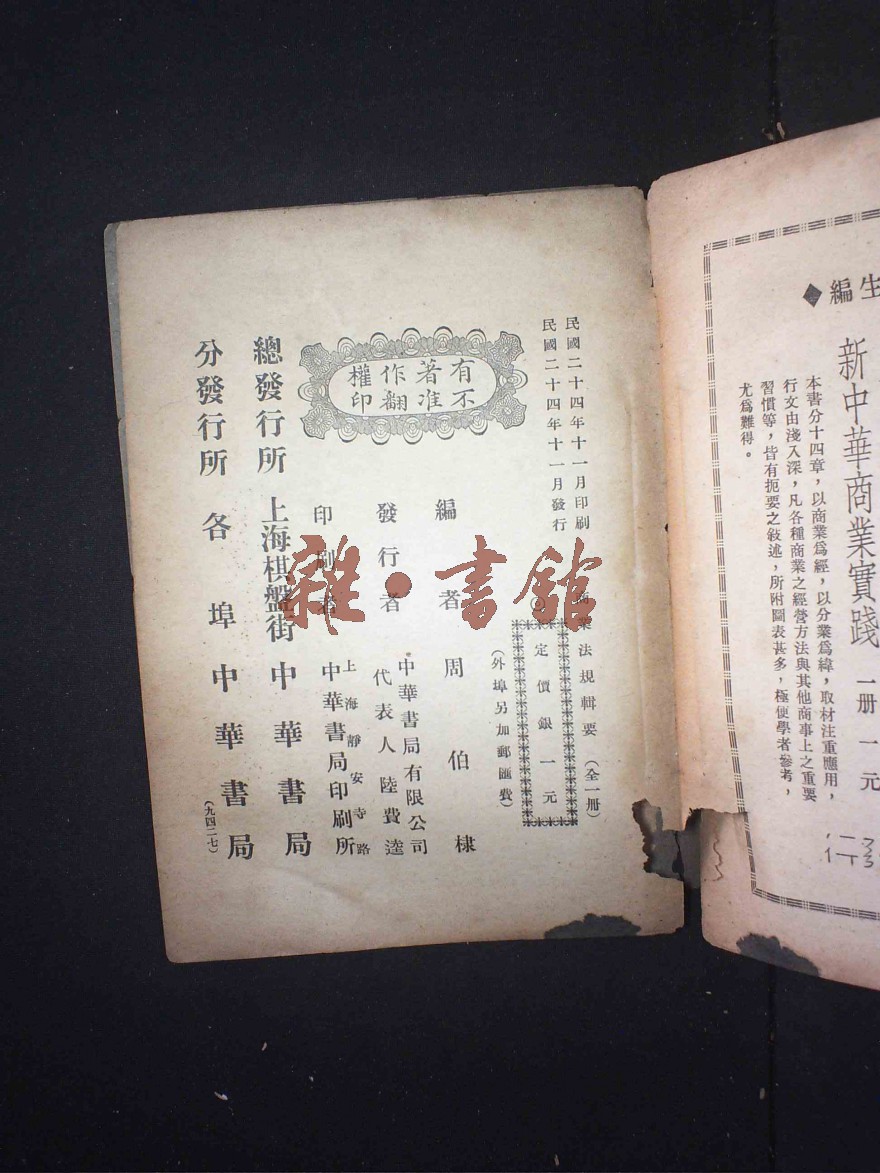 生編◆
新中華商業實踐 一册 一元
本書分十四章，以商業爲經，以分業爲緯，取材注重應用，
行文由淺入深，凡各種商業之經營方法與其他商事上之重要
習慣等，皆有扼要之敍述，所附圖表甚多，極便學者參考，
尤爲難得。
民國二十四年十一月印刷
民國二十四年十一月發行
商業法規輯要（全一册）
◎定價銀一元
（外埠另加郵匯費）
有著作權
不准翻印
編者 周伯棣
發行者 中華書局有限公司
代表人 陸費逵
印刷者 上海靜安寺路
中華書局印刷所
總發行所 上海棋盤街 中華書局
分發行所 各埠中華書局
（九四二七）
雜·書館